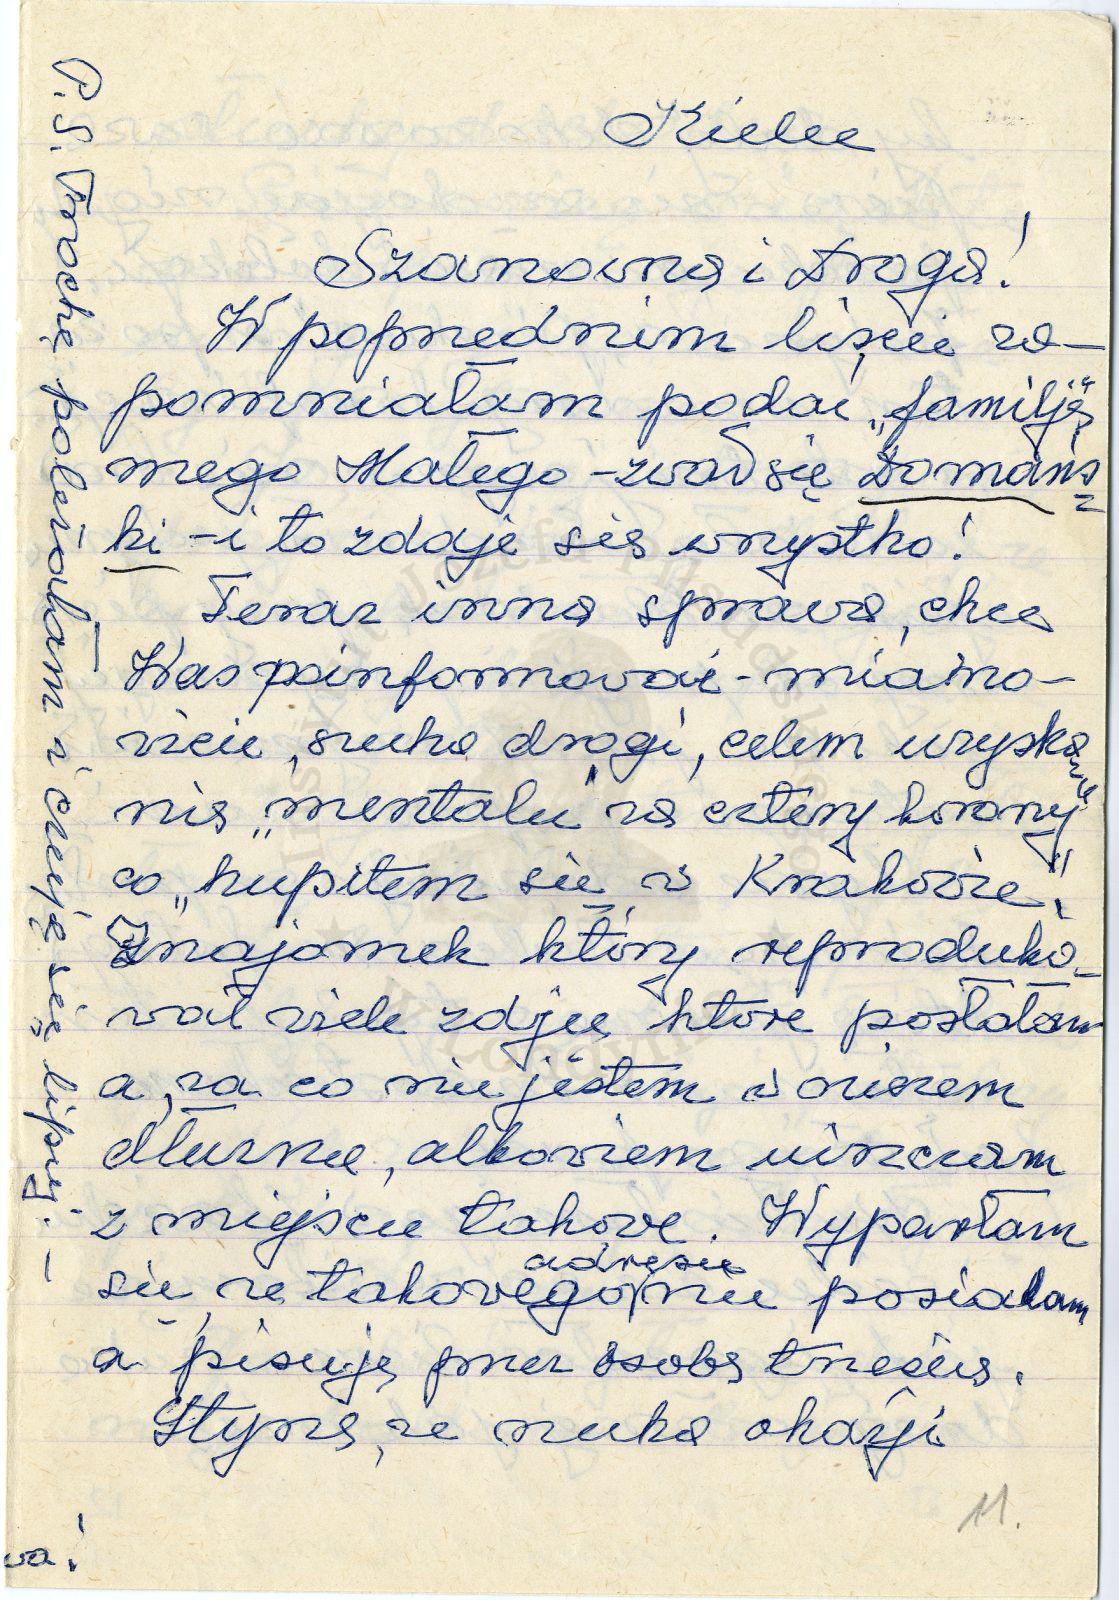 Kielce
Szanowna i Droga!
W poprzednim liście za-
pomniałam podać "familję"
mego Małego - zwał się Domańs
ki - i to zdaje się wszystko!
Teraz inna sprawa, chcę
Was poinformować - miano-
wicie, szuka drogi, celem uzyska
nia "mentalu" za cztery korony
co "kupiłem się w Krakowie".
Znajomek który reproduko-
wał wiele zdjęć które posłałam
a za co nie jestem w niczem
dłużna, albowiem uiszczam
z miejsca takowe. Wyparłam
się, że takowego adresu nie posiadam
a pisuję przez osobę trzecią.
Słyszę, że szuka okazji
P.S. Trochę poleżałam i czuję się lepiej. -
wa!
11.